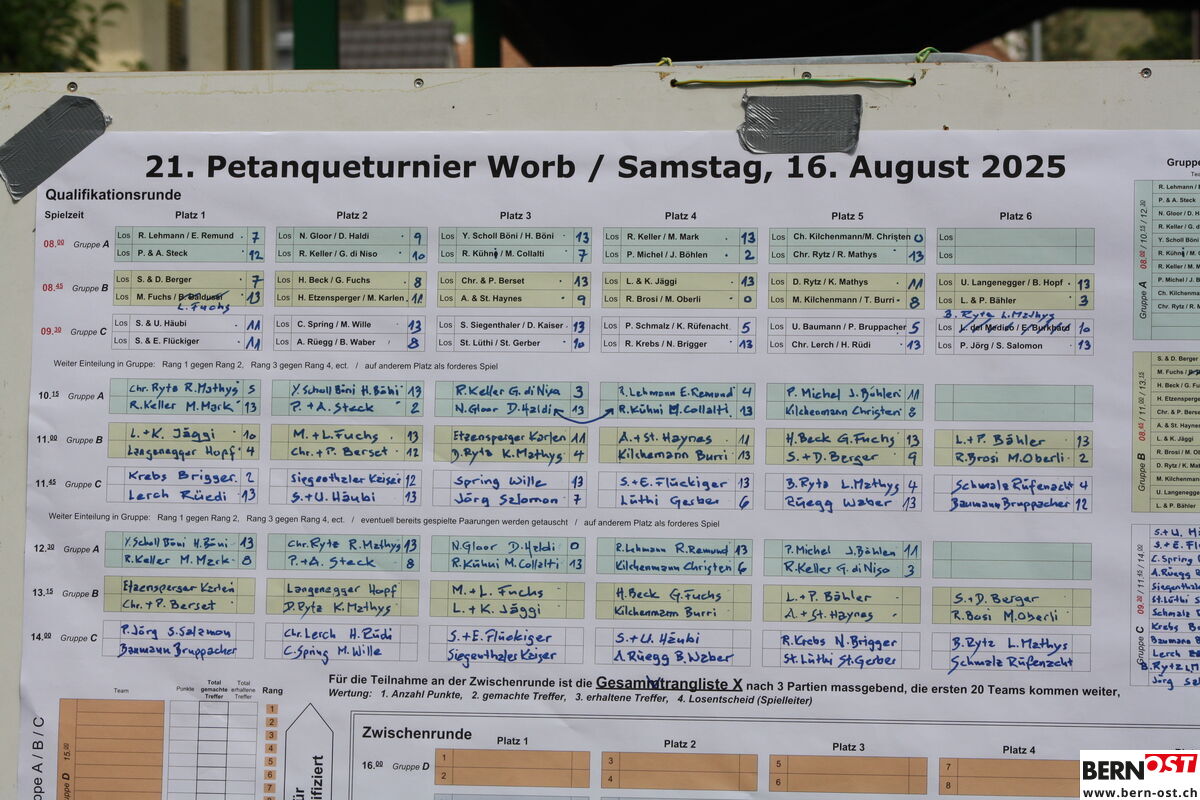 21. Petanqueturnier Worb / Samstag, 16. August 2025
Qualifikationsrunde
Spielzeit Platz 1 Platz 2 Platz 3 Platz 4 Platz 5 Platz 6
08.00 Gruppe A
Los R. Lehmann / E. Remund 7 Los N. Gloor / D. Haldi 9 Los Y. Scholl Böni / H. Böni 13 Los R. Keller / M. Mark 13 Los Ch. Kilchenmann/M. Christen 0 Los
Los P. & A. Steck 12 Los R. Keller / G. di Niso 10 Los R. Kühni / M. Collalti 7 Los P. Michel / J. Böhlen 2 Los Chr. Rytz / R. Mathys 13 Los
08.45 Gruppe B
Los S. & D. Berger 7 Los H. Beck / G. Fuchs 8 Los Chr. & P. Berset 13 Los L. & K. Jäggi 13 Los D. Rytz / K. Mathys 11 Los U. Langenegger / B. Hopf 13
Los M. Fuchs / B. Baldussi 13 Los H. Etzensperger / M. Karlen 11 Los A. & St. Haynes 9 Los R. Brosi / M. Oberli 0 Los M. Kilchenmann / T. Burri 8 Los L. & P. Bähler 3
L. Fuchs B. Rytz L. Mathys
09.30 Gruppe C
Los S. & U. Häubi 11 Los C. Spring / M. Wille 13 Los S. Siegenthaler / D. Kaiser 13 Los P. Schmalz / K. Rüfenacht 5 Los U. Baumann / P. Bruppacher 5 Los L. del Medico / E. Burkhard 10
Los S. & E. Flückiger 11 Los A. Rüegg / B. Waber 8 Los St. Lüthi / St. Gerber 10 Los R. Krebs / N. Brigger 13 Los Chr. Lerch / H. Rüdi 13 Los P. Jörg / S. Salomon 13
Weiter Einteilung in Gruppe: Rang 1 gegen Rang 2, Rang 3 gegen Rang 4, ect. / auf anderem Platz als forderes Spiel
10.15 Gruppe A
Chr. Rytz R. Mathys 5 Y. Scholl Böni H. Böhi 13 R. Keller G. di Nisa 3 R. Lehmann E. Remund 4 P. Michel J. Böhlen 11
R. Keller M. Mark 13 P. + A. Steck 2 N. Gloor D. Haldi 13 R. Kühni M. Collalti 13 Kilchenmann Christen 8
11.00 Gruppe B
L. + K. Jäggi 10 M. + L. Fuchs 13 Etzensperger Karlen 11 A. + St. Haynes 11 H. Beck G. Fuchs 13 L. + P. Bähler 13
Langenegger Hopf 4 Chr. + P. Berset 12 D. Rytz K. Mathys 4 Kilchemann Burri 13 S. + D. Berger 9 R. Brosi M. Oberli 2
11.45 Gruppe C
Krebs Brigger 2 Siegenthaler Keiser 12 Spring Wille 13 S. + E. Flückiger 13 B. Rytz L. Mathys 4 Schmalz Rüfenacht 4
Lerch Rüedi 13 S. + U. Häubi 13 Jörg Szlomon 7 Lüthi Gerber 6 Rüegg Waber 13 Baumann Bruppacher 12
Weiter Einteilung in Gruppe: Rang 1 gegen Rang 2, Rang 3 gegen Rang 4, ect. / eventuell bereits gespielte Paarungen werden getauscht / auf anderem Platz als forderes Spiel
12.30 Gruppe A
Y. Scholl Böni H. Böni 13 Chr. Rytz R. Mathys 13 N. Gloor D. Haldi 0 R. Lehmann R. Remund 13 P. Michel J. Böhlen 11
R. Keller M. Mark 8 P. + A. Steck 8 R. Kühni M. Collalti 13 Kilchenmann Christen 6 R. Keller G. di Niso 3
13.15 Gruppe B
Etzensperger Karlen Langenegger Hopf M. + L. Fuchs H. Beck G. Fuchs L. + P. Bähler S. + D. Berger
Chr. + P. Berset D. Rytz K. Mathys L. + K. Jäggi Kilchenmann Burri A + St. Haynes R. Bosi M. Oberli
14.00 Gruppe C
P. Jörg S. Salzmon Chr. Lerch H. Rüdi S. + E. Flückiger S. + U. Häubi R. Krebs N. Brigger B. Rytz L. Mathys
Baumann Bruppacher C. Spring M. Wille Siegenthaler Keiser A. Rüegg B. Waber St. Lüthi St. Gerber Schmalz Rüfenacht
Für die Teilnahme an der Zwischenrunde ist die Gesamtrangliste X nach 3 Partien massgebend, die ersten 20 Teams kommen weiter,
Wertung: 1. Anzahl Punkte, 2. gemachte Treffer, 3. erhaltene Treffer, 4. Losentscheid (Spielleiter)
Team Punkte Total gemachte Treffer Total erhaltene Treffer Rang
1
2
3
4
5
6
7
8
ppe A / B / C
ppe D 15.00
ür
ifiziert
Zwischenrunde
Platz 1 Platz 2 Platz 3 Platz 4
16.00 Gruppe D
1 3 5 7
2 4 6 8
Gruppe
Gruppe A 08.00 / 10.15 / 12.30
R. Lehmann /
P. & A. Steck
N. Gloor / D
R. Keller /
Y. Scholl Böni
R. Kühni /
R. Keller / M
P. Michel / J
Ch. Kilchenma
Chr. Rytz / R
Gruppe B 08.45 / 11.00 / 13.15
S. & D. Berge
M. Fuchs /
H. Beck / G.
H. Etzensper
Chr. & P. Bers
A. & St. Hayn
L. & K. Jäggi
R. Brosi / M.
D. Rytz / K. M
M. Kilchenma
U. Langenegg
L. & P. Bähler
Gruppe C 09.30 / 11.45 / 14.00
S. + U. H
S. + E. Fl
C. Spring
A. Rüegg
Siegenthal
St. Lüthi S
Schmalz
Krebs B
Baumann
Lerch
B. Rytz L M
Jörg
BERN OST
www.bern-ost.ch